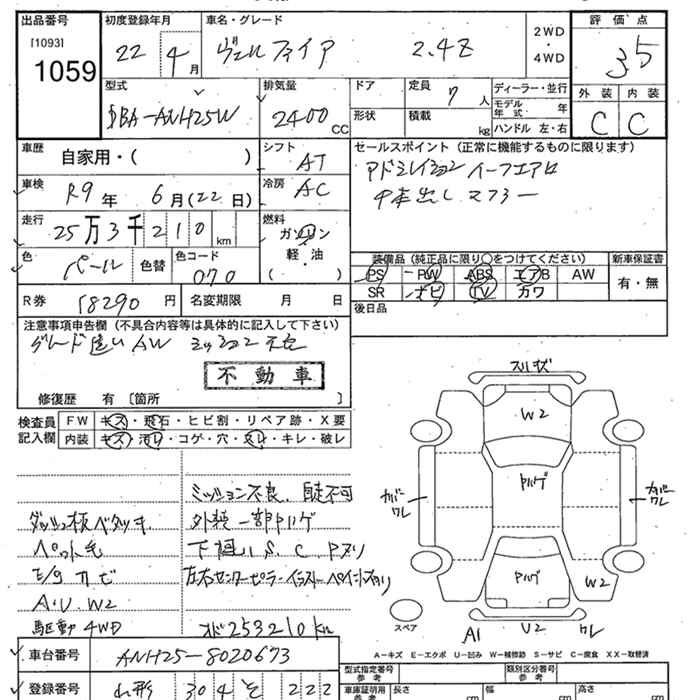 出品番号 初度登録年月 車名・グレード 評価点
[1093]
1059
22 4月 ヴェルファイア 2.4Z 2WD・4WD 35
型式 排気量 ドア 定員 7人 ディーラー・並行 外装 内装
DBA-ANH25W 2400CC 形状 積載 kg モデル年式 年 C C
ハンドル 左・右
車歴 自家用・( ) シフト AT セールスポイント(正常に機能するものに限ります)
車検 R9年 6月(22日) 冷房 AC アドミレイション
走行 25万3千210km 燃料 ガソリン・軽油
( ・ )
色 パール 色替 色コード 070
装備品(純正品に限り○をつけてください) 新車保証書
PS PW ABS エアB AW 有・無
SR ナビ TV カワ
R券 18290円 名変期限 月 日 後日品
注意事項申告欄(不具合内容等は具体的に記入して下さい)
グレード違いAW ミッション
不動車
修復歴 有〔箇所 〕
検査員記入欄 FW キズ・飛石・ヒビ割・リペア跡・X要
内装 キズ・汚レ・コゲ・穴・スレ・キレ・破レ
ミッション不良、自走不可
ダッシュ板ベタツキ 外装一部ハゲ
ペット毛 下廻りS、C、Pヌリ
E/gカビ 左右センターピラーイラストペイント有り
A.U.W2
駆動4WD 253210km
スリキズ
W2
カバーワレ Pハゲ カバーワレ
Pハゲ W2
スペア A1 U2 ワレ
A-キズ E-エクボ U-凹み W-補修跡 S-サビ C-腐食 XX-取替済
車台番号 ANH25-8020673
型式指定番号 参考 類別区分番号 参考
登録番号 山形 304 そ 222
車庫証明用 参考 長さ cm 幅 cm 高さ cm